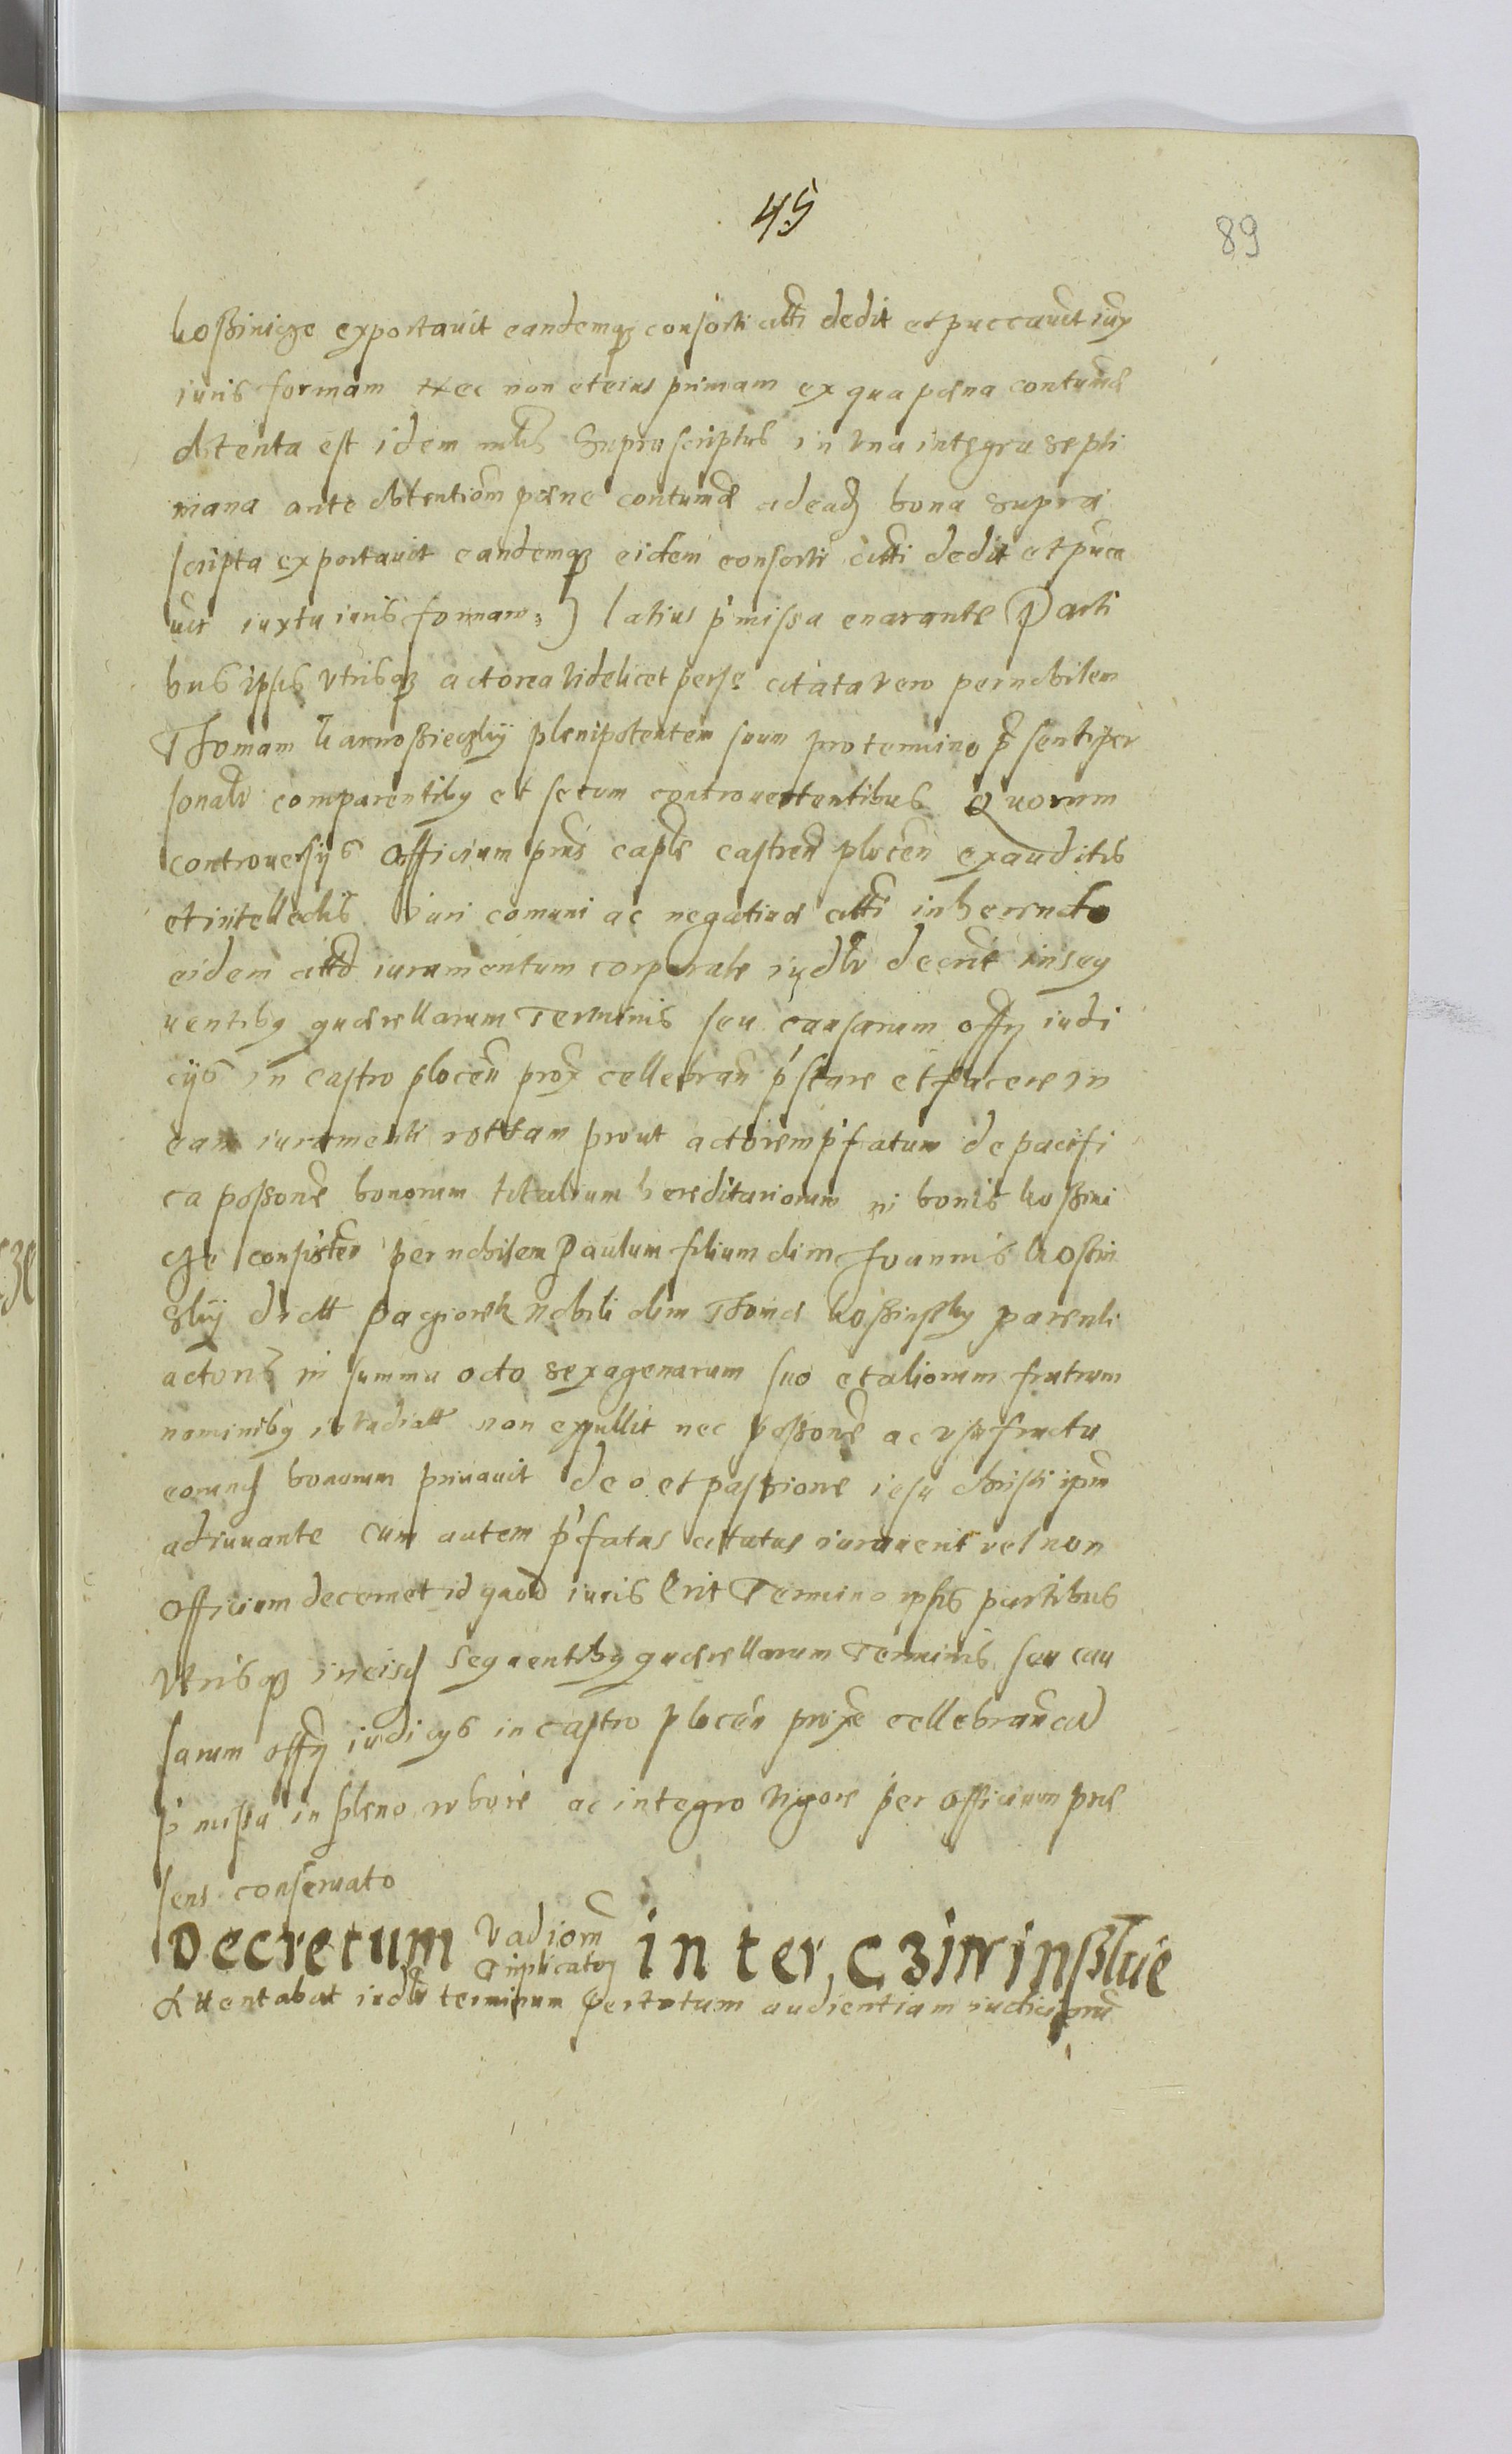 45
89
koßinicze exportauit eandemq3 consorti citti dedit et puccauit iux
iuris formam Nec non et eius primam ex qua pæna contumæ
obtenta est idem mlis Suprascriptus in vna integra septi
mana ante obtentiom pæne contumæ ad eadē bona supra
scripta exportauit eandemq3 eidem consorti citti dedit et puca
uit iuxta iuris formam) latius p'missa enarante Parti
bus ipsis vtrisq3 actorea videlicet per se citata vero per nobilem
Thomam karnoßieczky plenipotentem suum pro termino p'senti per
sonalr comparentiby et secum controuertentibus Quorum
controuersijs Officium pñs caple castreñ ploceñ exauditis
et intellectis Juri comuni ac negatiuæ citti inherendo
eidem citto iuramentum corporale iudlr decreuit in sequ
uentiby quærellarum Terminis seu causarum offy iudi
cijs in castro ploceñ prox cellebrañ p'stare et facere in
eam iuramenti rottam prout actorem p'fatum de pacifi
ca poßone bonorum totalium hereditariorum in bonis koßini
cze consisteñ per nobilem Paulum filium olim Joannis koßin
sky dictt Pacziorek nobili olim Thomæ koßinsky parenti
actoris in summa octo sexagenarum suo et aliorum fratrum
nominiby inuadiatt non expullit nec poßone ac vsufructu
eorund bonorum priuauit deo et paßione iesu christi ipm
adiuuante Cum autem p'fatus citatus iurauerit vel non
Officium decernet id quod iuris erit Termino ipsis partibus
vtrisq3 in eisd sequentiby quærellarum Terminis seu cau
sarum offy iudicijs in castro ploceñ proxe cellebrañ
p'missa in pleno robore ac integro vigore per officium præ
sens conseruato
Decretum vadiom inter Cziwinßkie
Attentabat iudlr terminum per totum audientiam iudiciorum